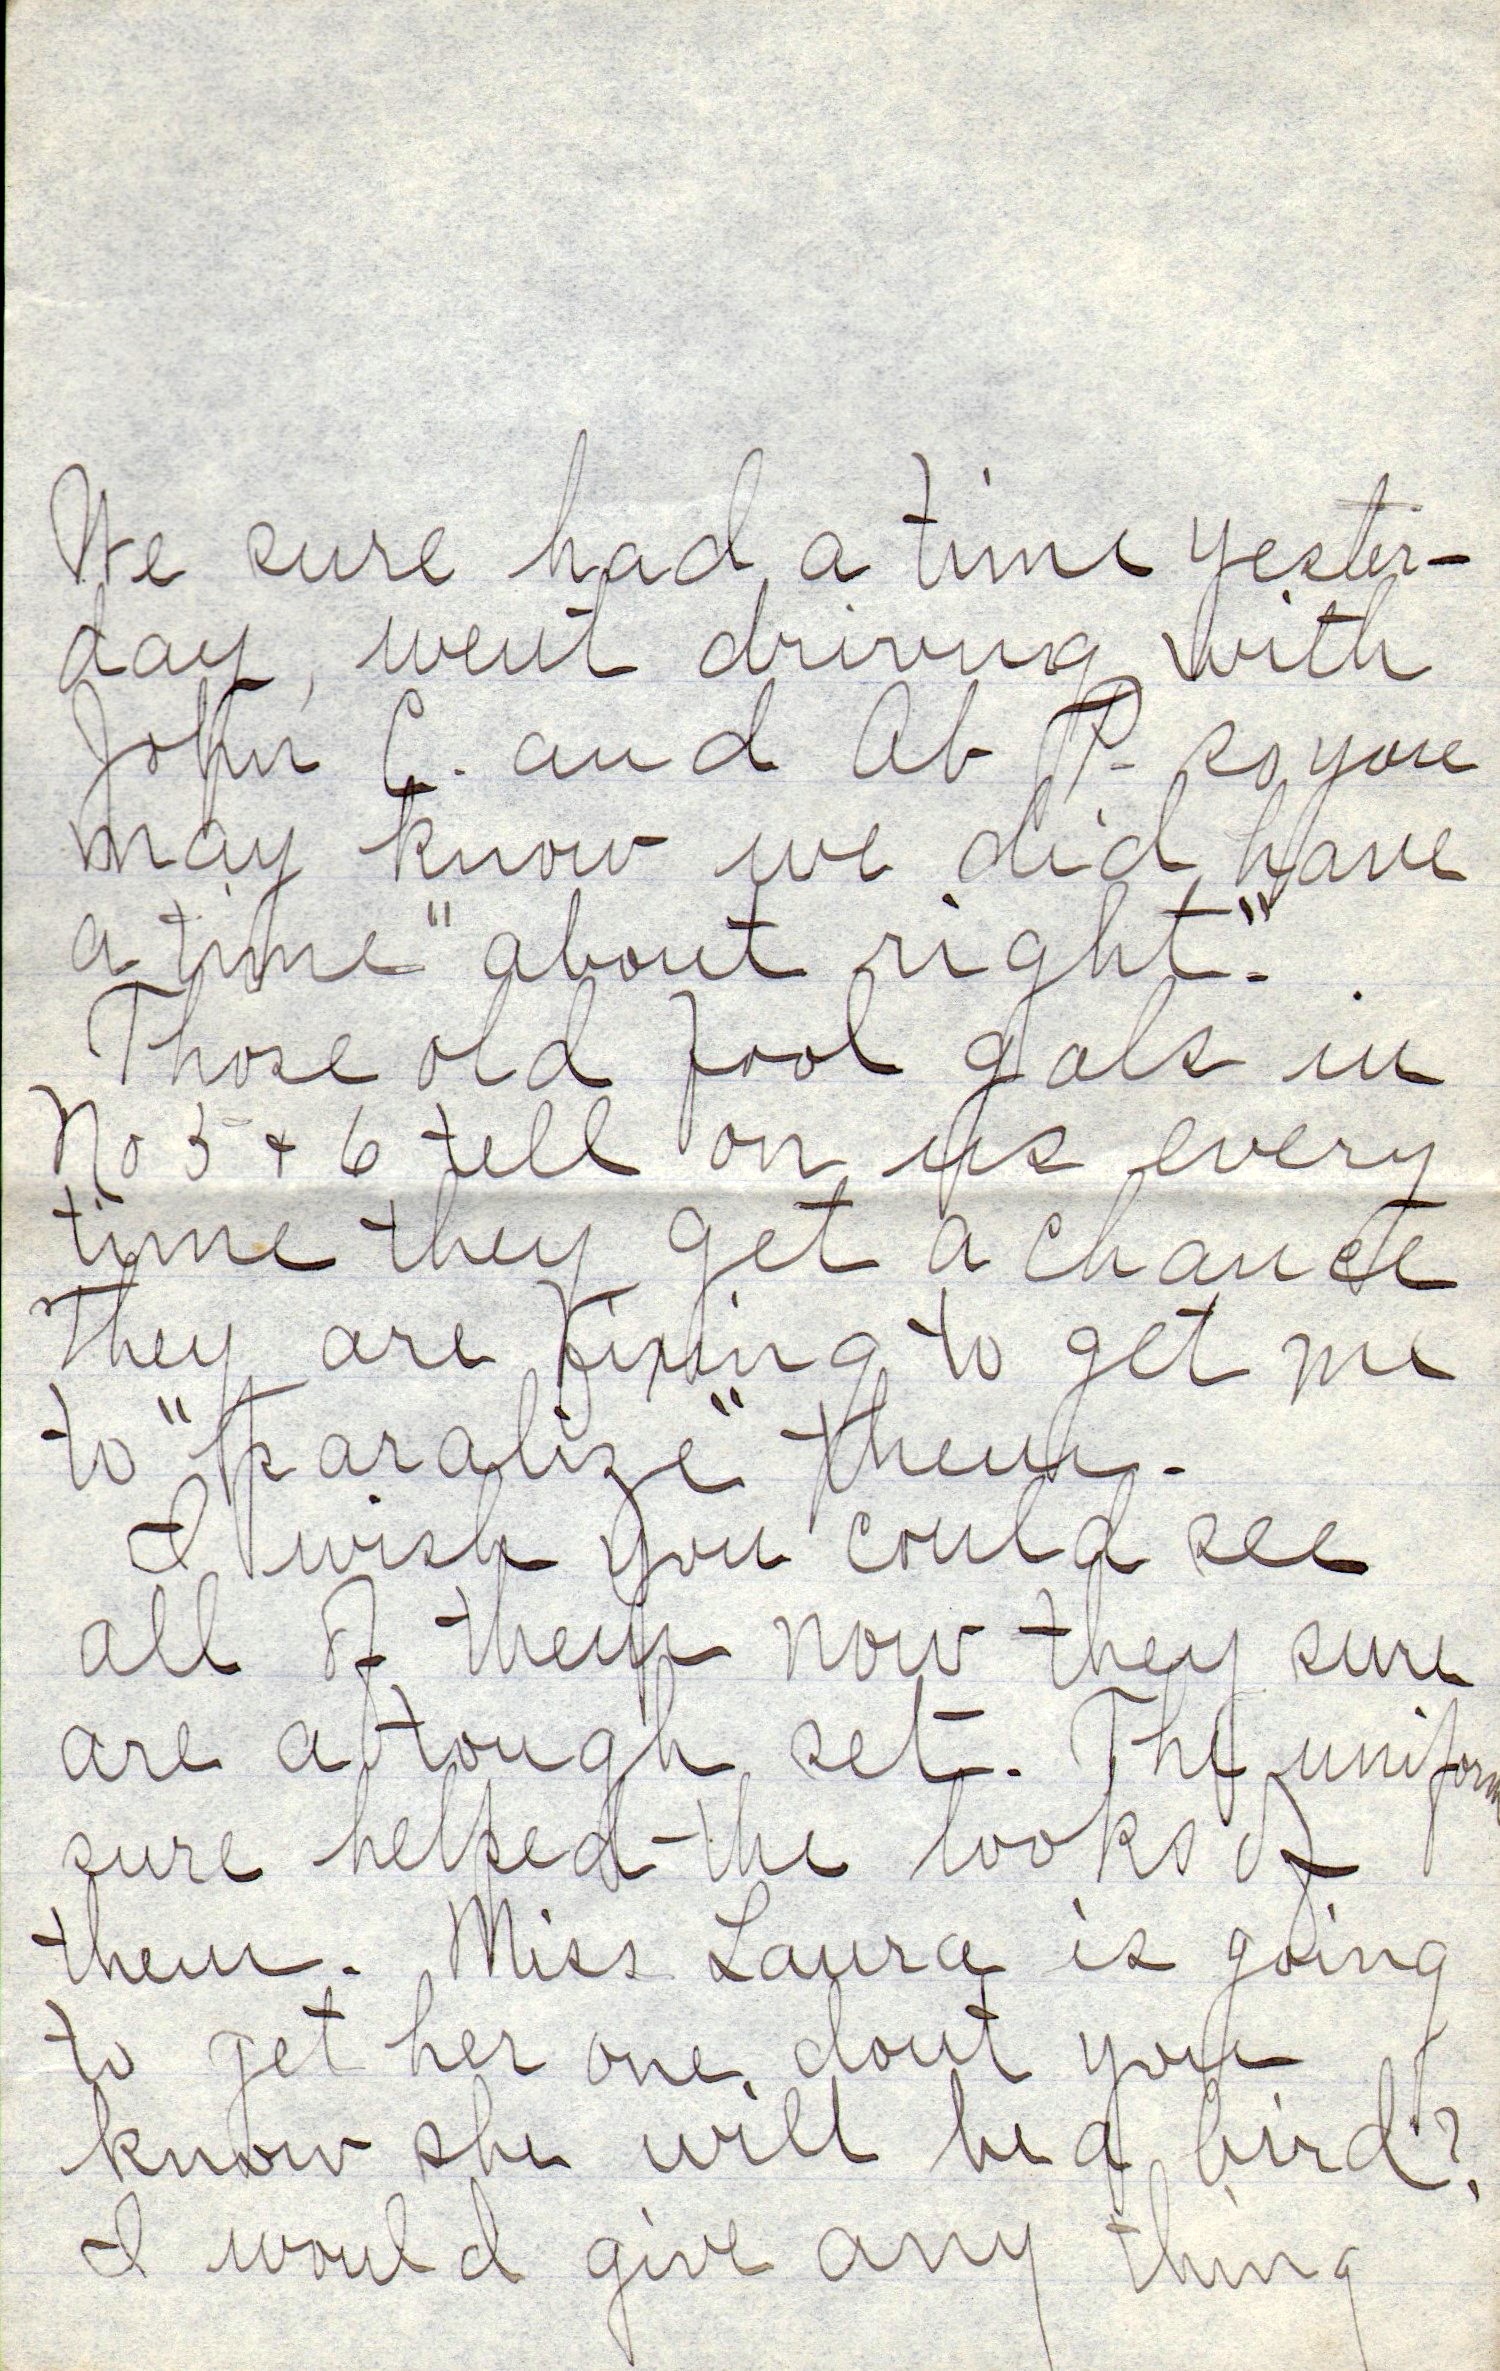 We sure had a time yester-
day, went driving with
John C. and Ab P. so you
may know we did have
a time "about right".
Those old fool gals in
No 5 + 6 tell on us every
time they get a chance
They are fixing to get me
to "paralize" them.
I wish you could see
all of them now they sure
are a tough set. The uniform
sure helped the looks of
them. Miss Laura is going
to get her one, dont you
know she will be a bird?
I would give any thing